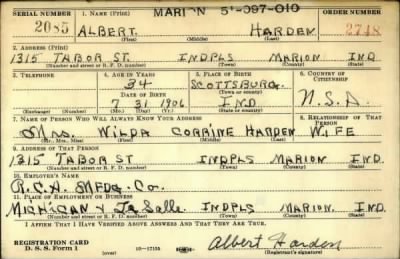 SERIAL NUMBER 1. NAME (Print) MARION 5-097-010 ORDER NUMBER
2085 ALBERT HARDEN 2748
(First) (Middle) (Last)
2. ADDRESS (Print)
1315 TABOR ST. INDPLS MARION IND
(Number and street or R. F. D. number) (Town) (County) (State)
3. TELEPHONE 4. AGE IN YEARS 5. PLACE OF BIRTH 6. COUNTRY OF CITIZENSHIP
34 SCOTTSBURG
DATE OF BIRTH (Town or county)
7 31 1906 IND U.S.A.
(Exchange) (Number) (Mo.) (Day) (Yr.) (State or country)
7. NAME OF PERSON WHO WILL ALWAYS KNOW YOUR ADDRESS 8. RELATIONSHIP OF THAT PERSON
Mrs. WILDA CORRINE HARDEN WIFE
(Mr., Mrs., Miss) (First) (Middle) (Last)
9. ADDRESS OF THAT PERSON
1315 TABOR ST INDPLS MARION IND.
(Number and street or R. F. D. number) (Town) (County) (State)
10. EMPLOYER'S NAME
R.C.A. MFDG. CO.
11. PLACE OF EMPLOYMENT OR BUSINESS
MICHIGAN & La Salle INDPLS MARION. IND
(Number and street or R. F. D. number) (Town) (County) (State)
I AFFIRM THAT I HAVE VERIFIED ABOVE ANSWERS AND THAT THEY ARE TRUE.
REGISTRATION CARD
D. S. S. Form 1 16—17105 Albert Harden
(Registrant's signature)